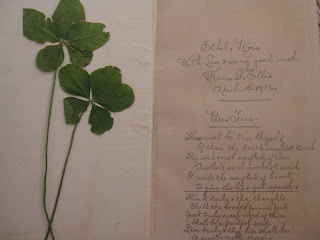 Ethel Moon
With Love & every good wish
From D. Ellis
April 15 1916.
Be True.
Thou must be true thyself
If thou the truth wouldst teach
Thy soul must overflow if thou
Another's soul wouldst reach
It needs the overflow of heart
To give the lips full speech.
Think truly & thy thoughts
Shall the world's famine feed
Speak truly each word of thine
Shall be a fruitful seed
Live truly & thy life shall be